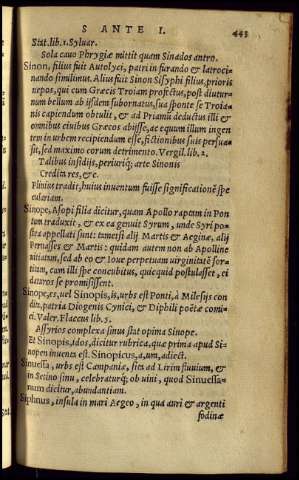 S ANTE I. 443
Stat. lib. 1. Syluar.
Sola cauo Phrygiæ mittit quam Sinados antro.
Sinon, filius fuit Autolyci, patri in furando & latroci-
nando simillimus. Alius fuit Sinon Sisyphi filius, prioris
nepos, qui cum Græcis Troiam profectus, post diutur-
num bellum ab ijsdem subornatus, sua sponte se Troia-
nis capiendum obtulit, & ad Priamũ deductus illi &
omnibus ciuibus Græcos abijsse, ac equum illum ingen
tem in vrbem recipiendum esse, fictionibus suis persua-
sit, sed maximo eorum detrimento. Vergil. lib. 2.
Talibus insidijs, periuriq; arte Sinonis
Credita res, &c.
Plinius tradit, huius inuentum fuisse significationẽ spe
culariam.
Sinope, Asopi filia dicitur, quam Apollo raptam in Pon
tum traduxit, & ex ea genuit Syrum, vnde Syri po-
stea appellati sunt: tametsi alij Martis & Aeginæ, alij
Pernasses & Martis: quidam autem non ab Apolline
vitiatam, sed ab eo & Ioue perpetuam virginitatẽ sor-
titam, cum illi spe concubitus, quicquid postulasset, ei
daturos se promisissent.
Sinope, es, vel Sinopis, is, vrbs est Ponti, à Milesijs con
dita, patria Diogenis Cynici, & Diphili poëtæ comi-
ci. Valer. Flaccus lib. 5.
Assyrios complexa sinus stat opima Sinope.
Et Sinopis, idos, dicitur rubrica, quæ prima apud Si-
nopen inuenta est. Sinopicus, a, um, adiect.
Sinuessa, vrbs est Campaniæ, sita ad Lirim fluuium, &
in Setino sinu, celebraturq; ob uini, quod Sinuessa-
num dicitur, abundantiam.
Siphnus, insula in mari Aegeo, in qua auri & argenti
fodinæ